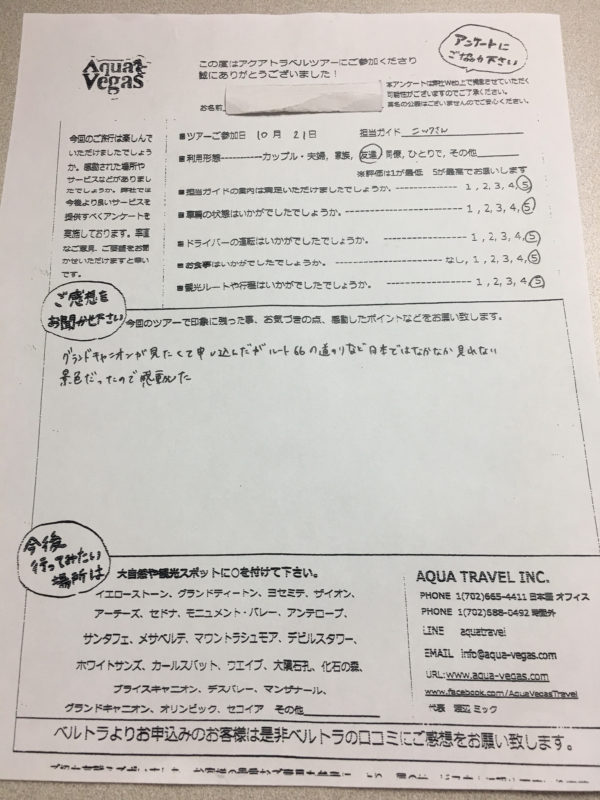 Aqua Vegas
この度はアクアトラベルツアーにご参加くださり
誠にありがとうございました！
アンケートに
ご協力下さい
本アンケートは弊社Web上で掲載させていただく
可能性がございますのでご了承ください。
実名の公開はございませんのでご安心ください。
お名前
今回のご旅行は楽しんで
いただけましたでしょう
か。感動された場所や
サービスなどがありまし
たでしょうか。弊社では
今後より良いサービスを
提供すべくアンケートを
実施しております。率直
なご意見、ご要望をお聞
かせいただけますと幸い
です。
■ツアーご参加日 10月 21日 担当ガイド
■利用形態-----------カップル・夫婦, 家族, 友達, 同僚, ひとりで, その他
※評価は1が最低 5が最高でお願いします
■担当ガイドの案内は満足いただけましたでしょうか。--------------- 1 , 2, 3, 4, 5
■車輛の状態はいかがでしたでしょうか。--------------------------- 1 , 2, 3, 4, 5
■ドライバーの運転はいかがでしたでしょうか。--------------------- 1 , 2, 3, 4, 5
■お食事はいかがでしたでしょうか。--------------------------- なし, 1, 2, 3, 4, 5
■観光ルートや行程はいかがでしたでしょうか。--------------------- 1, 2, 3, 4, 5
ご感想を
お聞かせ下さい
今回のツアーで印象に残った事、お気づきの点、感動したポイントなどをお願い致します。
グランドキャニオンが見たくて申し込んだがルート66の道のりなど日本ではなかなか見れない
景色だったので感動した
今後
行ってみたい
場所は
大自然や観光スポットに○を付けて下さい。
イエローストーン、グランドティートン、ヨセミテ、ザイオン、
アーチーズ、セドナ、モニュメント・バレー、アンテロープ、
サンタフェ、メサベルデ、マウントラシュモア、デビルスタワー、
ホワイトサンズ、カールスバット、ウエイブ、大隕石孔、化石の森、
ブライスキャニオン、デスバレー、マンザナール、
グランドキャニオン、オリンピック、セコイア その他
AQUA TRAVEL INC.
PHONE 1(702)665-4411 日本語 オフィス
PHONE 1(702)688-0492 時間外
LINE aquatravel
EMAIL info@aqua-vegas.com
URL:www.aqua-vegas.com
www.facebook.com/AquaVegasTravel
代表 渡辺 ミック
ベルトラよりお申込みのお客様は是非ベルトラの口コミにご感想をお願い致します。